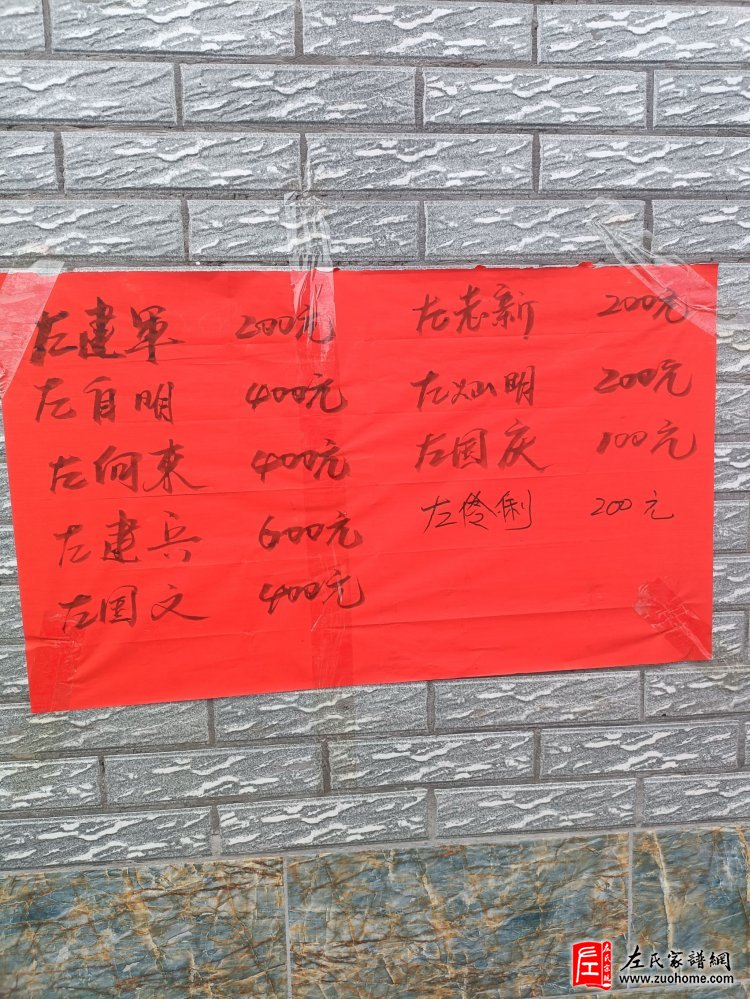 左建军 200元
左自明 400元
左向来 400元
左建兵 600元
左国文 400元
左志新 200元
左灿明 200元
左国庆 100元
左伶俐 200元
左氏家譜網
www.zuohome.com